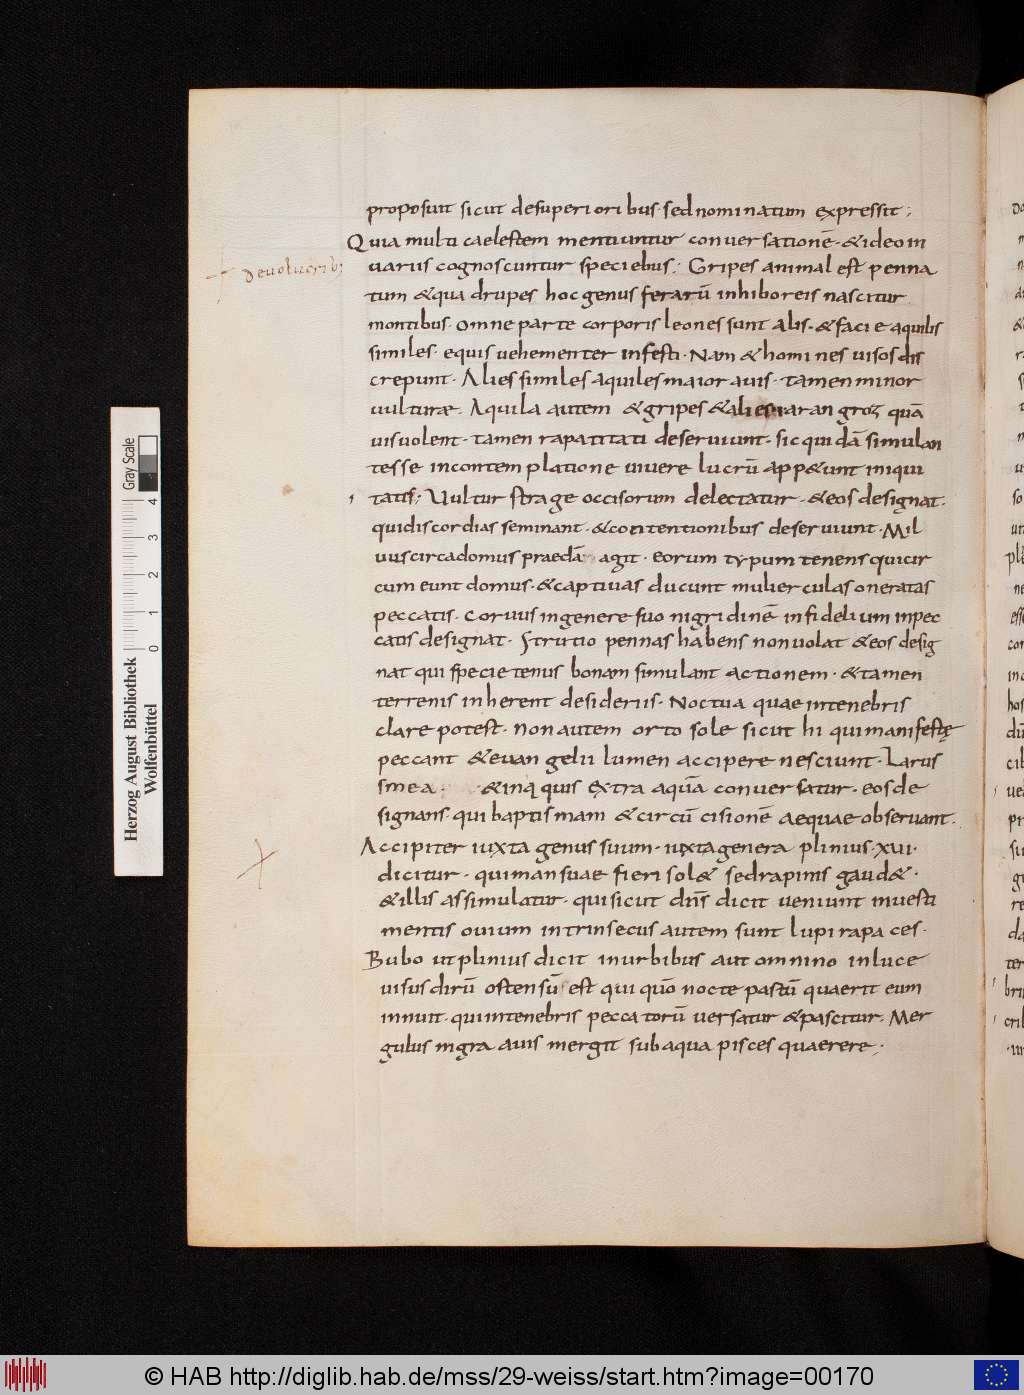 proposuit sicut desuperioribus sed nominatum expressit;
Quia multi caelestem mentiuntur conuersationē · & ideo in
De volucrib;
uariis cognoscuntur speciebus; Gripes animal est penna
tum & quadrupes hoc genus ferarū inhiboreis nascitur
montibus · omne parte corporis leones sunt alis · & facie aquilis
similes · equis uehementer infesti · Nam & homines uisos dis
crepunt · Alies similes aquiles maior auis · tamen minor
uulturae · Aquila autem & gripes & alies quā
uis uolent · tamen rapatitati deseruiunt · sic quidā simulan
tes se in contemplatione uiuere lucrū app&unt iniqui
tatis; Uultur strage occisorum delectatur · & eos designat ·
qui discordias seminant · & contentionibus deseruiunt · Mil
uus circa domus praedā agit · eorum typum tenens qui cir
cumeunt domus · & captiuas ducunt mulierculas oneratas
peccatis · Coruus in genere suo nigridinē infidelium in pec
catis designat · Strutio pennas habens non uolat & eos desig
nat qui specie tenus bonam simulant actionem · & tamen
terrenis inherent desideriis · Noctua quae in tenebris
clare potest · non autem orto sole sicut hi qui manifestę
peccant & euangelii lumen accipere nesciunt · Larus
in aq quis extra aquā conuersatur · eos de
signans · qui baptismam & circūcisionē aequae obseruant ·
Accipiter iuxta genus suum · iuxta genera plinius · xui ·
dicitur · qui mansuae fieri sol& sed rapinis gaud& ·
& illis assimulatur · qui sicut dn̄s dicit ueniunt in uesti
mentis ouium intrinsecus autem sunt lupi rapaces ·
Bubo ut plinius dicit in urbibus aut omnino in luce
uisus dirū ostensū est qui quō nocte pastū quaerit eum
innuit · qui in tenebris peccatorū uersatur & pascitur · Mer
gulus nigra auis mergit sub aqua pisces quaerere;
Herzog August Bibliothek
Wolfenbüttel
Gray Scale
0 1 2 3 4
© HAB http://diglib.hab.de/mss/29-weiss/start.htm?image=00170